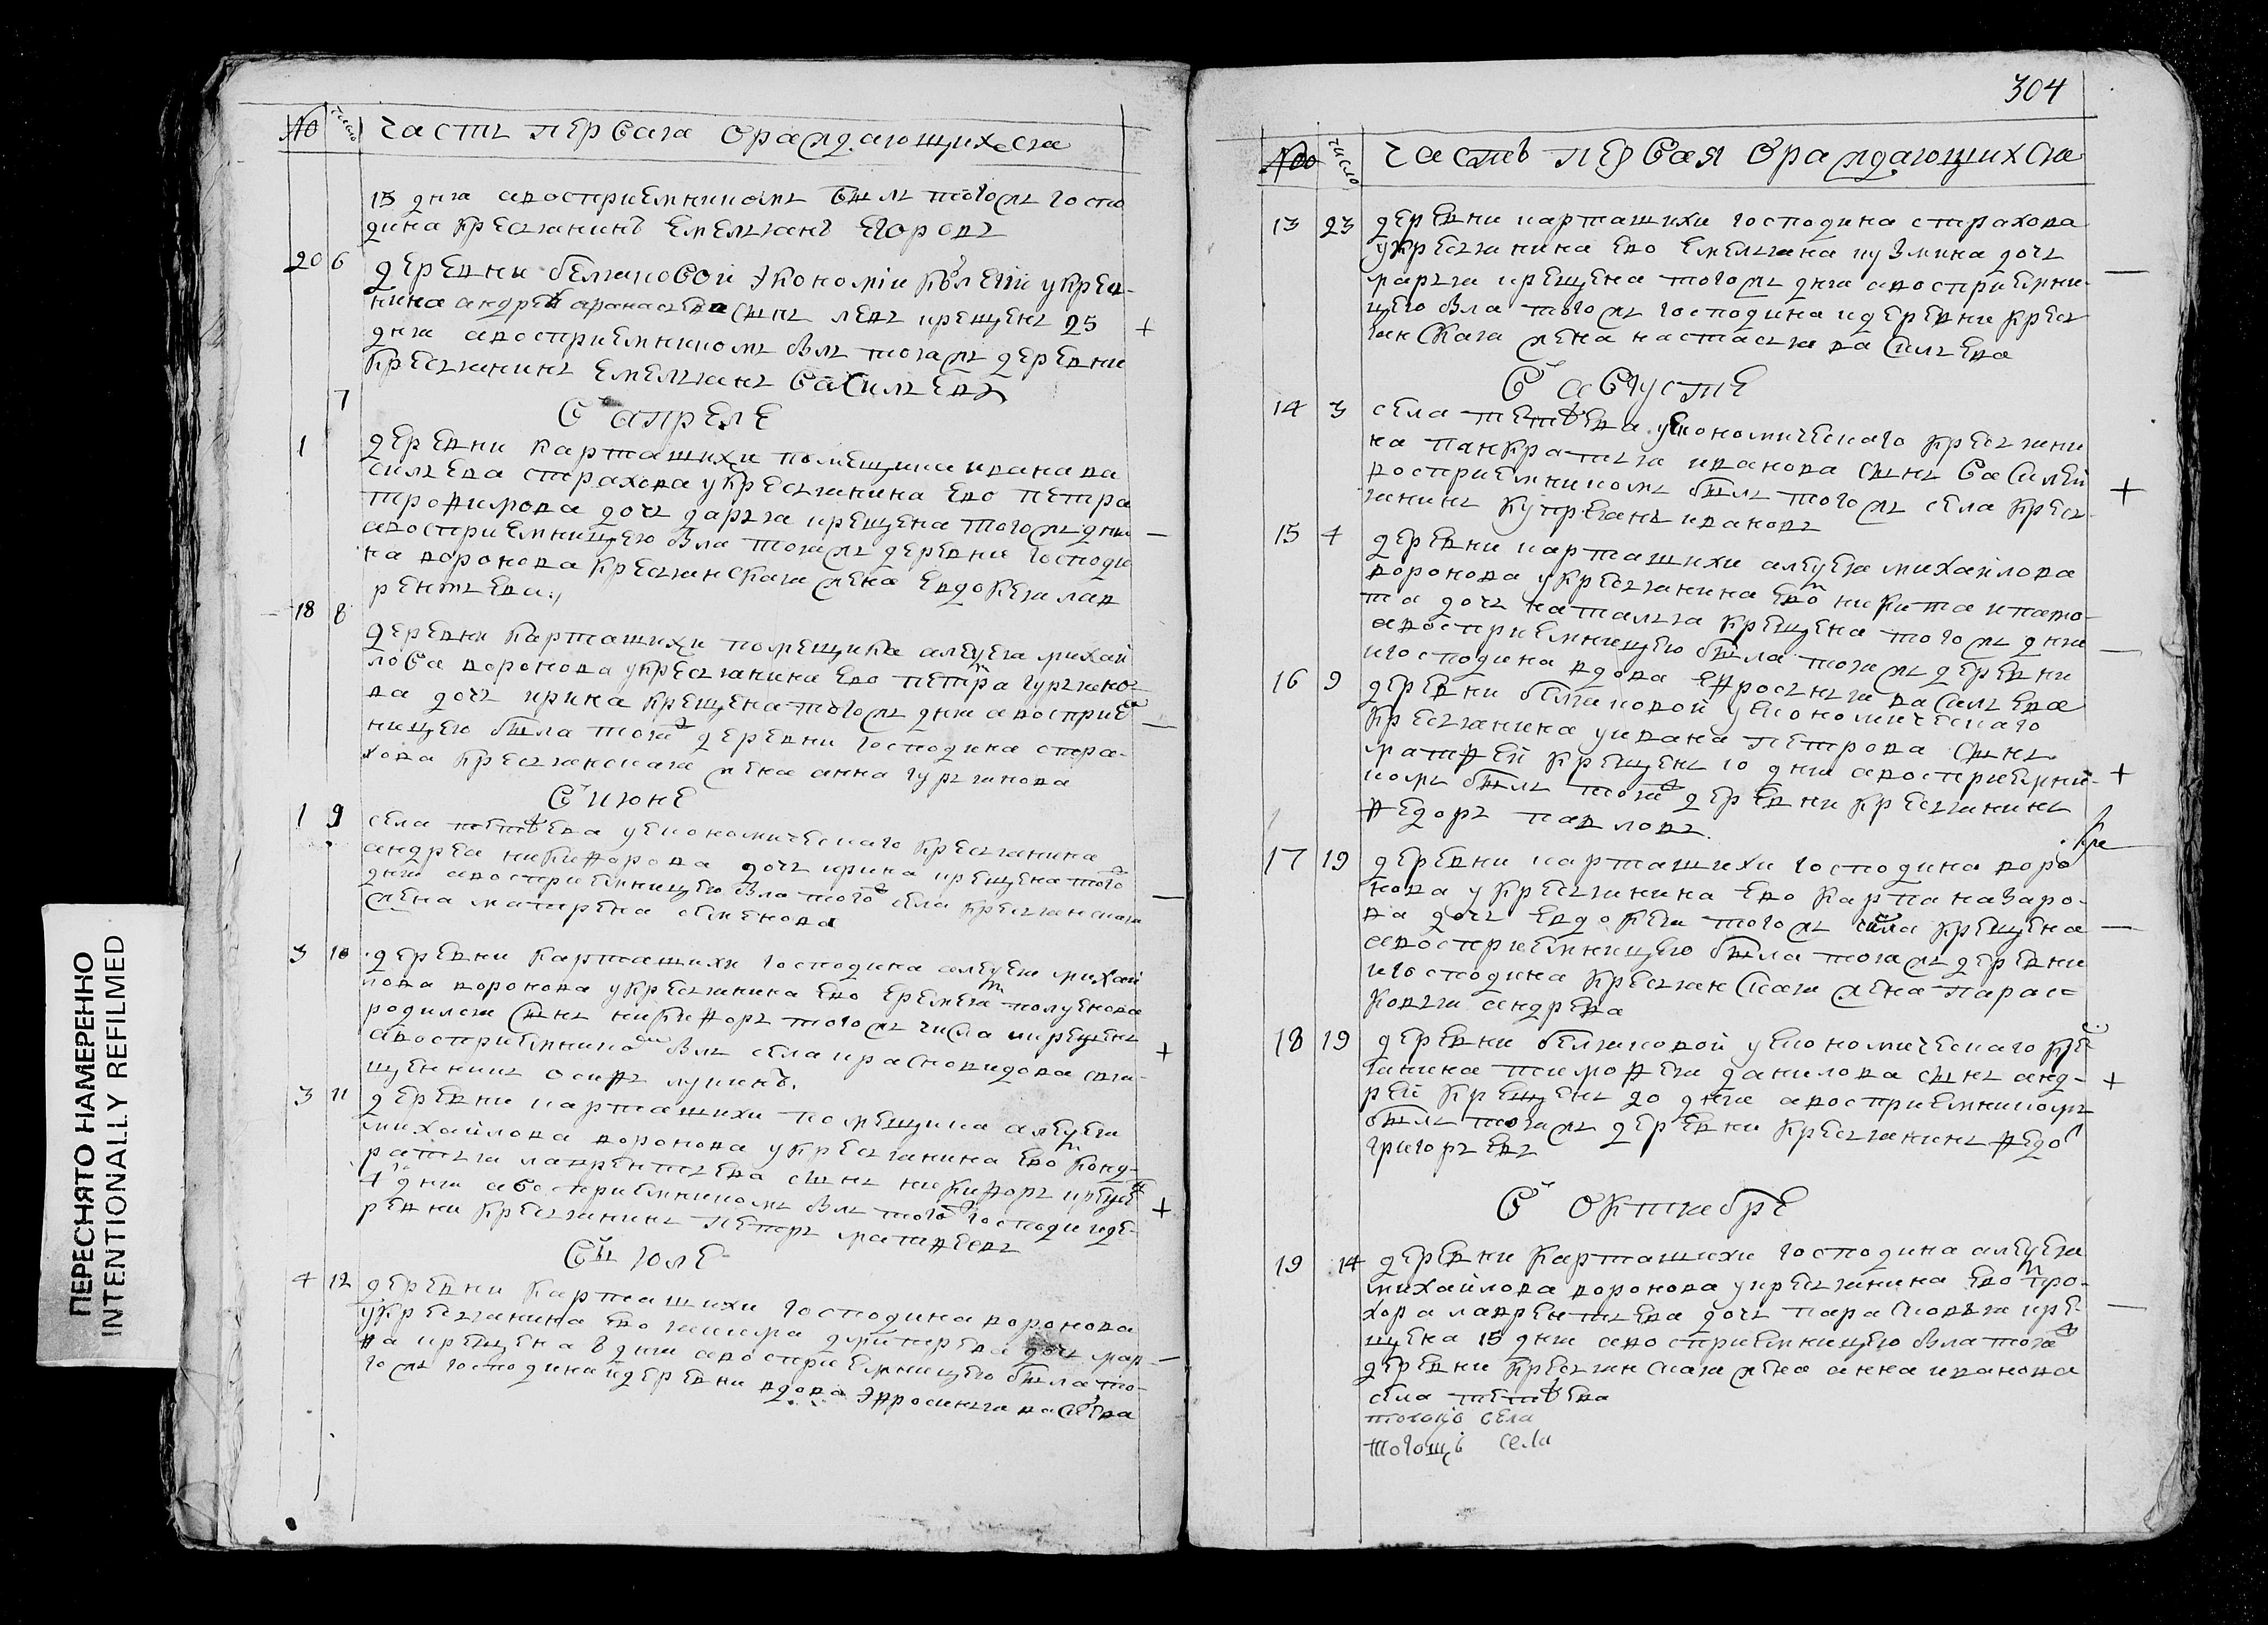 № число часть первая ораждающихся
15 дня авосприемникомъ былъ тогожъ госпо
дина крестьянинъ Емельянъ Егоровъ
20 6 деревни белянковой экономiи у крестья
нина андрея афанасьева сынъ левъ крещенъ 25 +
дня авосприемникомъ былъ тояжъ деревни
крестьянинъ Емельянъ Васильевъ
7 В апреле
1 деревни карташихи помещика ивана ва
сильева страхова у крестьянина ево петра
трофимова дочь дарья крещена тогожъ дни
авосприемницею была тояжъ деревни господи
на воронова крестьянская жена Евдокея лав
рентьева
18 8
деревни карташихи помещика алексея михай
лова воронова у крестьянина ево петра
ва дочь ирина крещена тогожъ дня авосприе
ницею была тояж деревни господина стра-
хова крестьянская жена анна
В июне
1 9 села у економического крестьянина
андрея никифорова дочь ирина крещена того
дня авосприемницею была того села крестьянская
жена матрена семенова
3 10 деревни карташихи господина алексея михай
лова воронова у крестьянина ево еремея
родился сынъ никифоръ тогожъ числа и крещенъ
авосприемнико былъ села красновидова свя- +
щенникъ осифъ лукинъ.
3 11 деревни карташихи помещика алексея
михайлова воронова у крестьянина ево конд-
ратья лаврентьева сынъ никифоръ креще
4 дня авосприемникомъ былъ того господи иде- +
ревни крестьянинъ петръ матвеевъ
В июле
4 12 деревни карташихи господина воронова
у крестьянина ево якима дмитрева дочь мар-
фа крещена 8 дня авосприемницею была то-
гожъ господина и деревни вдова Эфросинья васильева
304
№ число часть первая ораждающихся
13 23 деревни карташихи господина страхова
у крестьянина ево емельяна кузмина дочь
марья крещена тогожъ дня авосприемни-
цею была тогожъ господина и деревни крес
янская жена настасья васильева
В августе
14 3 села у економического крестьяни
на панкратья иванова сынъ Василей
восприемникомъ былъ тогожъ села крес- +
янинъ куприянъ ивановъ
15 4 деревни карташихи алексея михайлова
воронова у крестьянина ево никита
дочь наталья крещена тогожъ дня
авосприемницею была тояжъ деревни
и господина вдова Ефросинья васильева
16 9 деревни белянковой у економического
крестьянина у ивана петрова сынъ
матфей крещенъ 10 дня авосприемни- +
комъ былъ тояж деревни крестьянинъ
Федоръ павловъ.
17 19 деревни карташихи господина воро
нова у крестьянина ево карпа назаро-
ва дочь евдокея тогожъ числа крещена
авосприемницею была тояжъ деревни
и господина крестьянская жена парас=
ковья андрева
18 19 деревни белянковой у економического кре
янина тимофея данилова сынъ анд- +
рей крещенъ 20 дня авосприемникомъ
былъ тояжъ деревни крестьянинъ Федо
григорьевъ
В октябре
19 14 деревни карташихи господина алексея
михайлова воронова у крестьянина ево про-
хора лаврентьева дочь парасковья кре-
щена 15 дня авосприемницею была тояж
деревни крестьянская жена анна иванова
села
тогожъ села
тогожъ села
ПЕРЕСНЯТО НАМЕРЕННО
INTENTIONALLY REFILMED